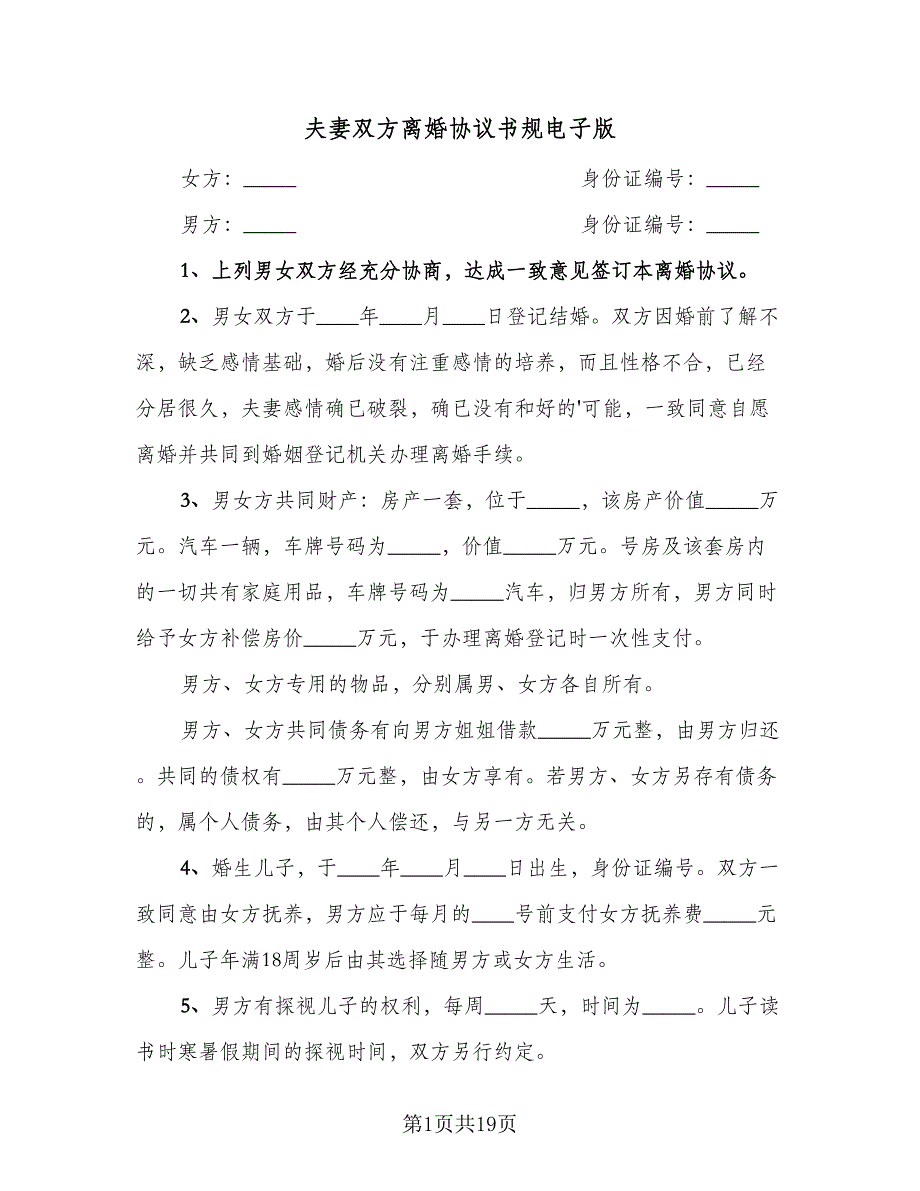 夫妻双方离婚协议书规电子版
女方：_____ 身份证编号：_____
男方：_____ 身份证编号：_____
1、上列男女双方经充分协商，达成一致意见签订本离婚协议。
2、男女双方于____年____月____日登记结婚。双方因婚前了解不
深，缺乏感情基础，婚后没有注重感情的培养，而且性格不合，已经
分居很久，夫妻感情确已破裂，确已没有和好的'可能，一致同意自愿
离婚并共同到婚姻登记机关办理离婚手续。
3、男女方共同财产：房产一套，位于_____，该房产价值_____万
元。汽车一辆，车牌号码为_____，价值_____万元。号房及该套房内
的一切共有家庭用品，车牌号码为_____汽车，归男方所有，男方同时
给予女方补偿房价_____万元，于办理离婚登记时一次性支付。
男方、女方专用的物品，分别属男、女方各自所有。
男方、女方共同债务有向男方姐姐借款_____万元整，由男方归还
。共同的债权有_____万元整，由女方享有。若男方、女方另存有债务
的，属个人债务，由其个人偿还，与另一方无关。
4、婚生儿子，于____年____月____日出生，身份证编号。双方一
致同意由女方抚养，男方应于每月的____号前支付女方抚养费_____元
整。儿子年满18周岁后由其选择随男方或女方生活。
5、男方有探视儿子的权利，每周_____天，时间为_____。儿子读
书时寒暑假期间的探视时间，双方另行约定。
第1页共19页